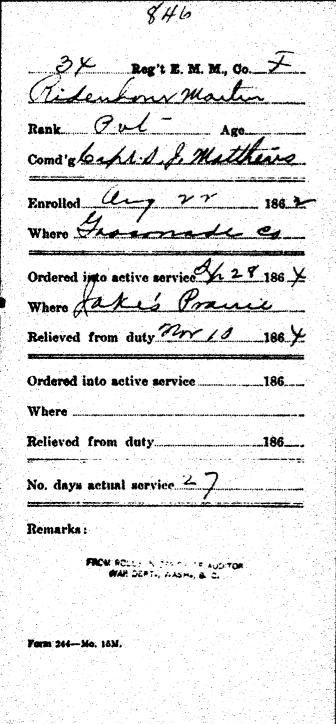 846
34 Reg't E. M. M., Co. F
Ridenhour Martin
Rank Pvt Age
Comd'g Capt. S. J. Matthews
Enrolled Aug 22 1862
Where Gasconade Co
Ordered into active service 28 1864
Where Jake's Prairie
Relieved from duty Nov 10 1864
Ordered into active service 186
Where
Relieved from duty 186
No. days actual service 27
Remarks:
FROM ROLLS IN OFFICE OF AUDITOR
WAR DEPT., WASH., D. C.
Form 244—No. 15M.